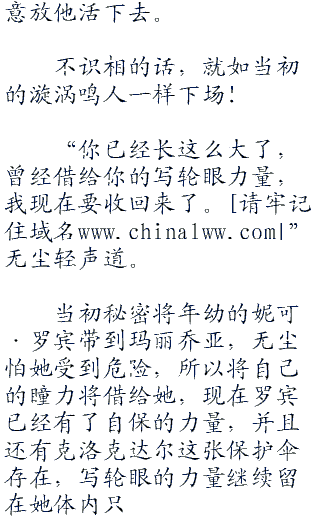 意放他活下去。
不识相的话，就如当初
的漩涡鸣人一样下场！
“你已经长这么大了，
曾经借给你的写轮眼力量，
我现在要收回来了。[请牢记
住域名www.china1ww.com|”
无尘轻声道。
当初秘密将年幼的妮可
·罗宾带到玛丽乔亚，无尘
怕她受到危险，所以将自己
的瞳力将借给她，现在罗宾
已经有了自保的力量，并且
还有克洛克达尔这张保护伞
存在，写轮眼的力量继续留
在她体内只